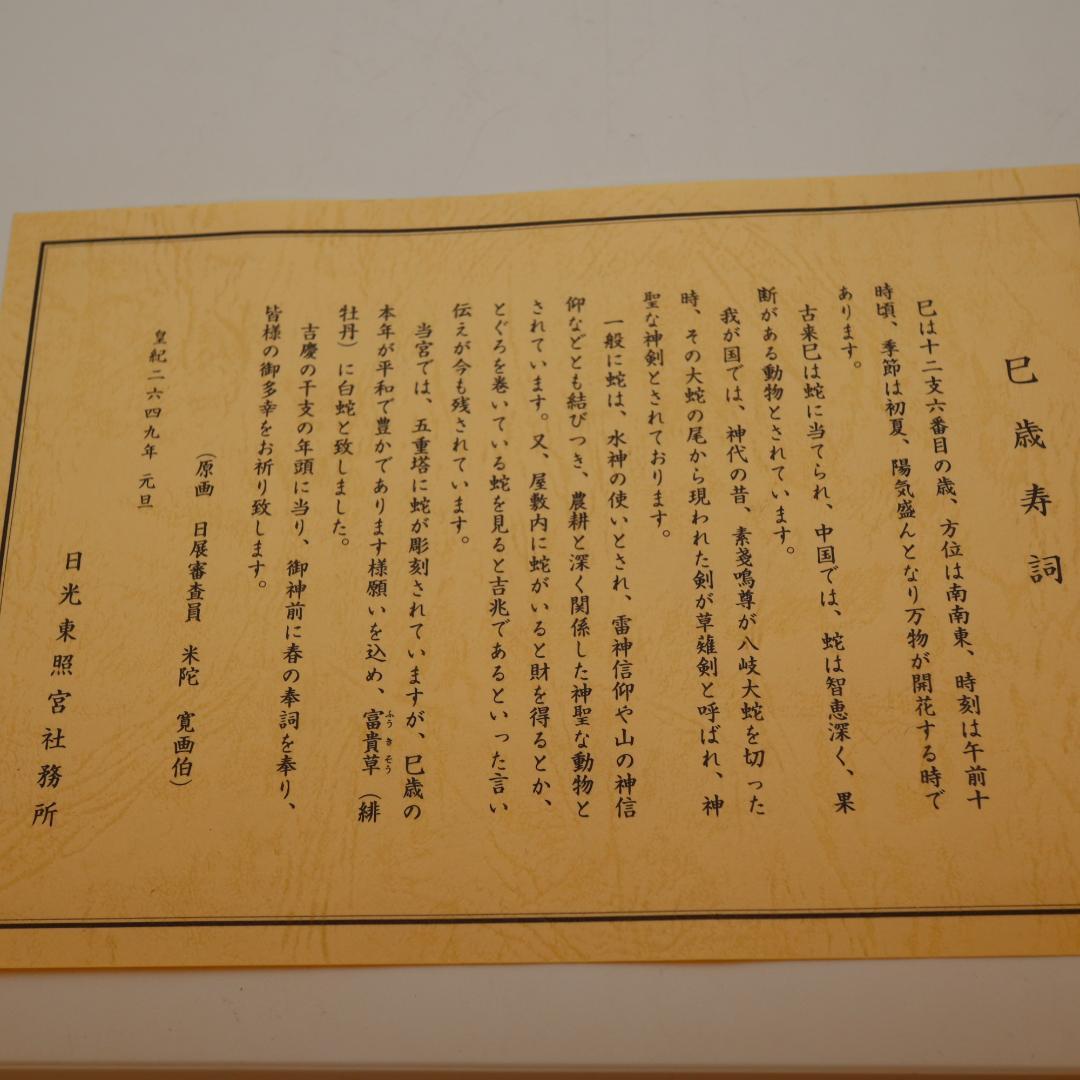 巳歳寿詞
巳は十二支六番目の歳、方位は南南東、時刻は午前十
時頃、季節は初夏、陽気盛んとなり万物が開花する時で
あります。
古来巳は蛇に当てられ、中国では、蛇は智恵深く、果
断がある動物とされています。
我が国では、神代の昔、素戔嗚尊が八岐大蛇を切った
時、その大蛇の尾から現われた剣が草薙剣と呼ばれ、神
聖な神剣とされております。
一般に蛇は、水神の使いとされ、雷神信仰や山の神信
仰などとも結びつき、農耕と深く関係した神聖な動物と
されています。又、屋敷内に蛇がいると財を得るとか、
とぐろを巻いている蛇を見ると吉兆であるといった言い
伝えが今も残されています。
当宮では、五重塔に蛇が彫刻されていますが、巳歳の
本年が平和で豊かであります様願いを込め、富貴草（緋
ふうきそう
牡丹）に白蛇と致しました。
吉慶の干支の年頭に当り、御神前に春の奉詞を奉り、
皆様の御多幸をお祈り致します。
（原画 日展審査員 米陀 寛画伯）
皇紀二六四九年 元旦
日光東照宮社務所